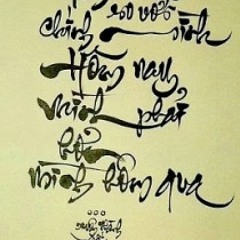 so với
chính mình
Hôm nay
mình phải
hơn
mình hôm qua